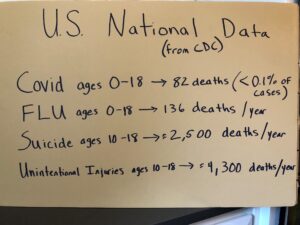 U.S. National Data
(from CDC)
Covid ages 0-18 → 82 deaths (<0.1% of cases)
FLU ages 0-18 → 136 deaths/year
Suicide ages 10-18 → ≈ 2,500 deaths/year
Unintentional Injuries ages 10-18 → ≈ 4,300 deaths/year